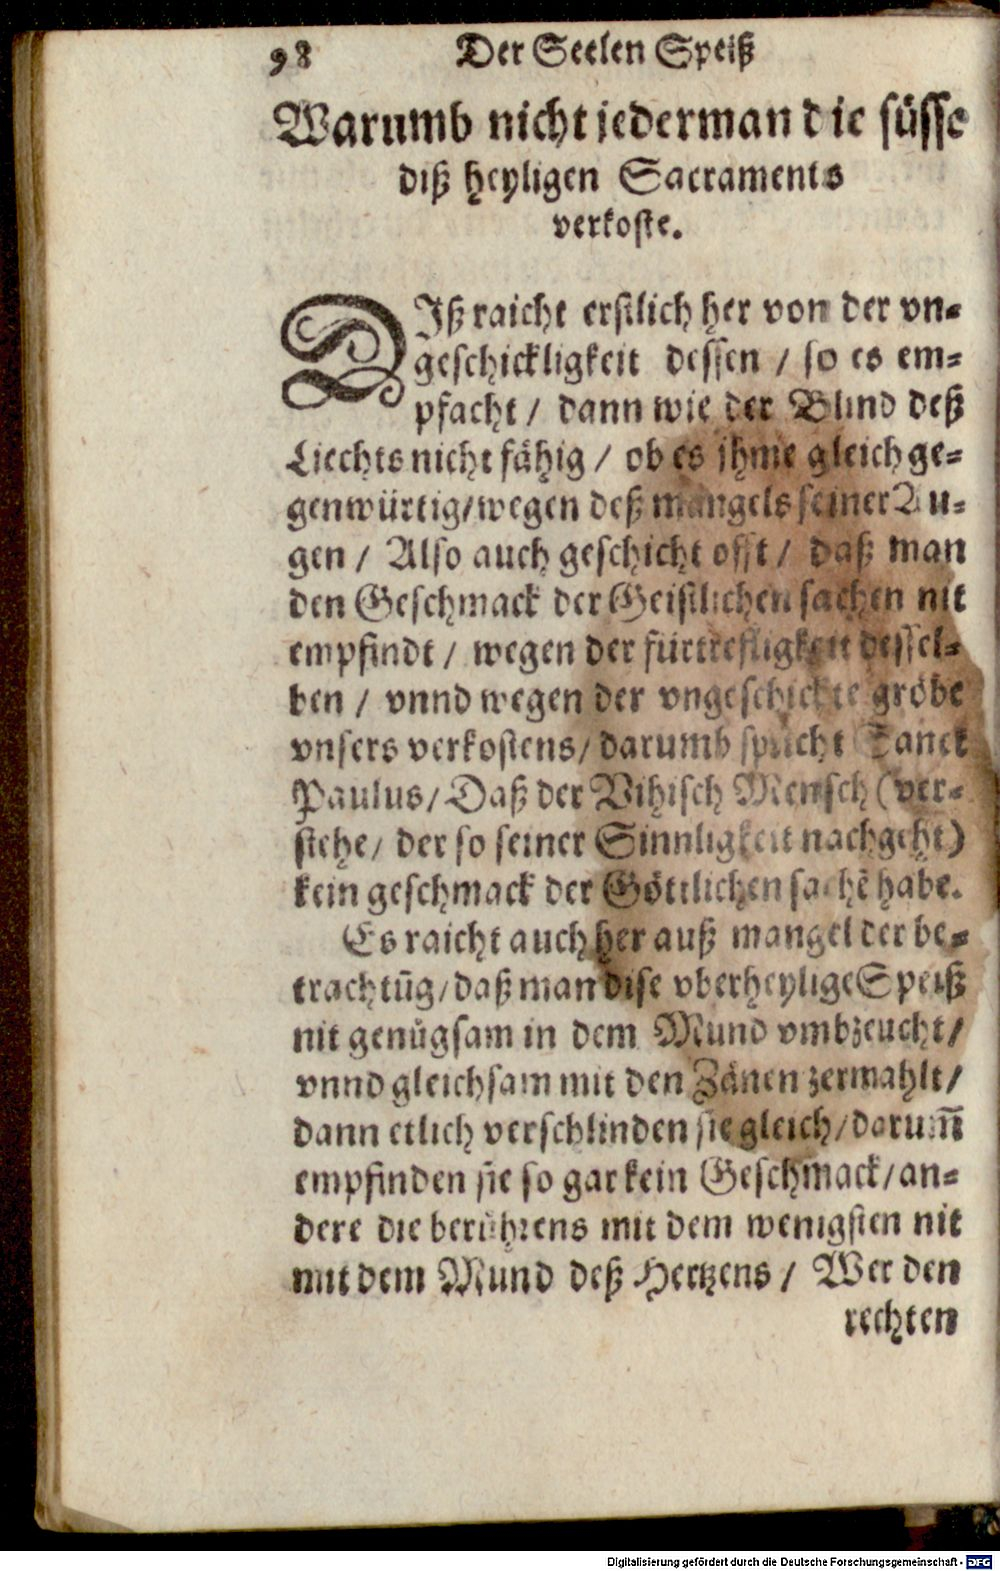 98 Der Seelen Speiß
Warumb nicht jederman die süsse
diß heyligen Sacraments
verkoste.
DIß raicht erstlich her von der vn-
geschickligkeit dessen / so es em-
pfacht / dann wie der Blind deß
Liechts nicht fähig / ob es jhme gleich ge-
genwürtig/wegen deß mangels seiner Au-
gen / Also auch geschicht offt / daß man
den Geschmack der Geistlichen sachen nit
empfindt / wegen der fürtrefligkeit dessel-
ben / vnnd wegen der vngeschickte gröbe
vnsers verkostens/ darumb spricht Sanct
Paulus/ Daß der Vihisch Mensch (ver-
stehe/ der so seiner Sinnligkeit nachgeht)
kein geschmack der Göttlichen sachẽ habe.
Es raicht auch her auß mangel der be-
trachtũg/daß man dise vberheylige Speiß
nit genůgsam in dem Mund vmbzeucht/
vnnd gleichsam mit den Zänen zermahlt/
dann etlich verschlinden sie gleich/darum̃
empfinden sie so gar kein Geschmack/an-
dere die berührens mit dem wenigsten nit
mit dem Mund deß Hertzens / Wer den
rechten
Digitalisierung gefördert durch die Deutsche Forschungsgemeinschaft - DFG